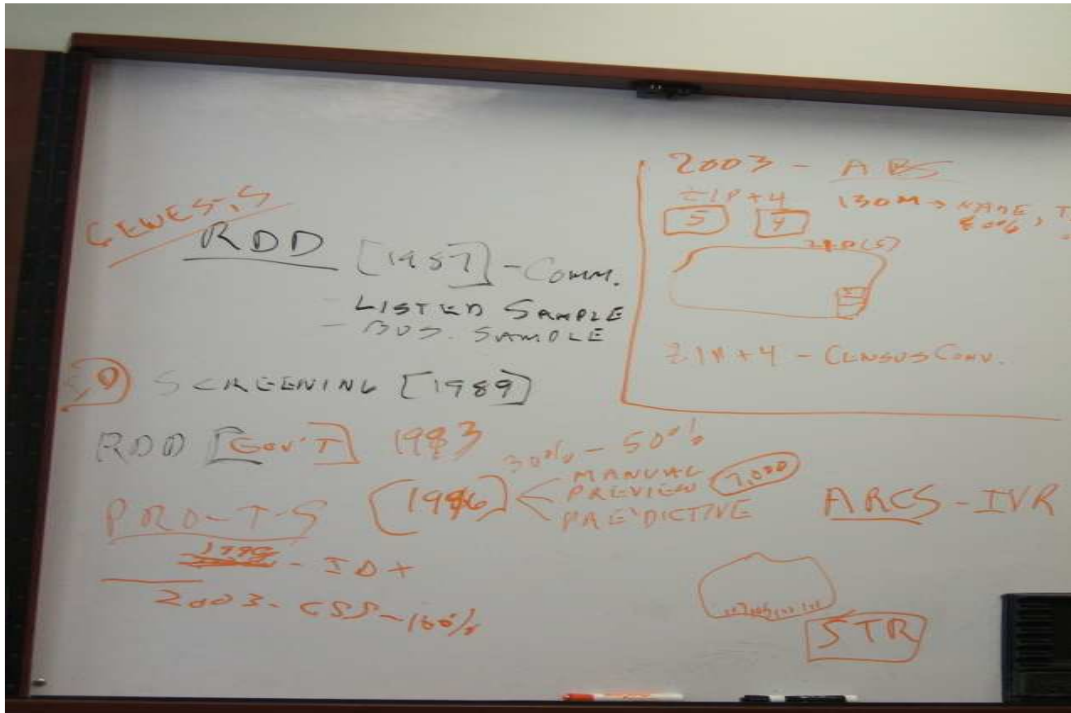 GENESIS
RDD [1987] - COMM.
- LISTED SAMPLE
- BUS. SAMPLE
SCREENING [1989]
RDD [GOV'T] 1993
30% - 50%
PRO-T-S [1996] < MANUAL
PREVIEW 7,000
PREDICTIVE
- ID+
2003 - CSS - 100%
2003 - ABS
ZIP + 4 130M → NAME,
5 4 80%
ZIP + 4 - CENSUS CONV.
ARCS - IVR
STR